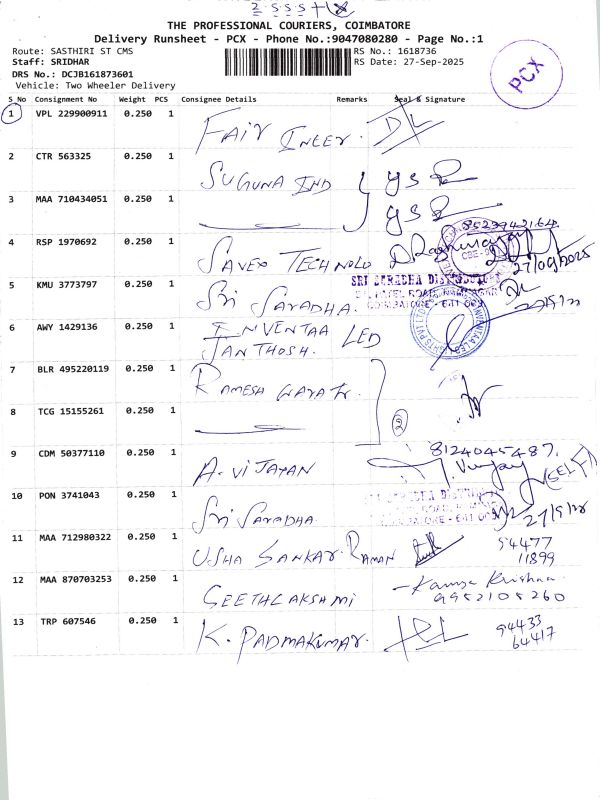 THE PROFESSIONAL COURIERS, COIMBATORE
Delivery Runsheet - PCX - Phone No.:9047080280 - Page No.:1
Route: SASTHIRI ST CMS
RS No.: 1618736
Staff: SRIDHAR
RS Date: 27-Sep-2025
DRS No.: DCJB161873601
Vehicle: Two Wheeler Delivery
PCX
S_No Consignment No Weight PCS Consignee Details Remarks Seal & Signature
1 VPL 229900911 0.250 1 FAIR INTER.
2 CTR 563325 0.250 1 SUGUNA IND
3 MAA 710434051 0.250 1
4 RSP 1970692 0.250 1 SAVEX TECHNOLO
27/09/2025
5 KMU 3773797 0.250 1 SRI SARADHA.
SRI SARADHA DISTRIBUTORS
COIMBATORE - 641
6 AWY 1429136 0.250 1 INVENTAA LED
SANTHOSH.
7 BLR 495220119 0.250 1 RAMESH
8 TCG 15155261 0.250 1
9 CDM 50377110 0.250 1 A. VIJAYAN
8124045487.
(SELF)
10 PON 3741043 0.250 1 SRI SARADHA.
11 MAA 712980322 0.250 1 USHA SANKAR RAMAN
94477
11899
12 MAA 870703253 0.250 1 GEETHLAKSHMI
Krishna
9952105260
13 TRP 607546 0.250 1 K. PADMAKUMAR.
94433
64417